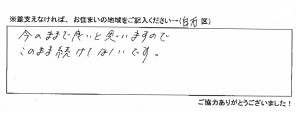 ※差支えなければ、お住まいの地域をご記入ください→(白石区)
今のままで良いと思いますので
このまま続けてほしいです。
ご協力ありがとうございました!